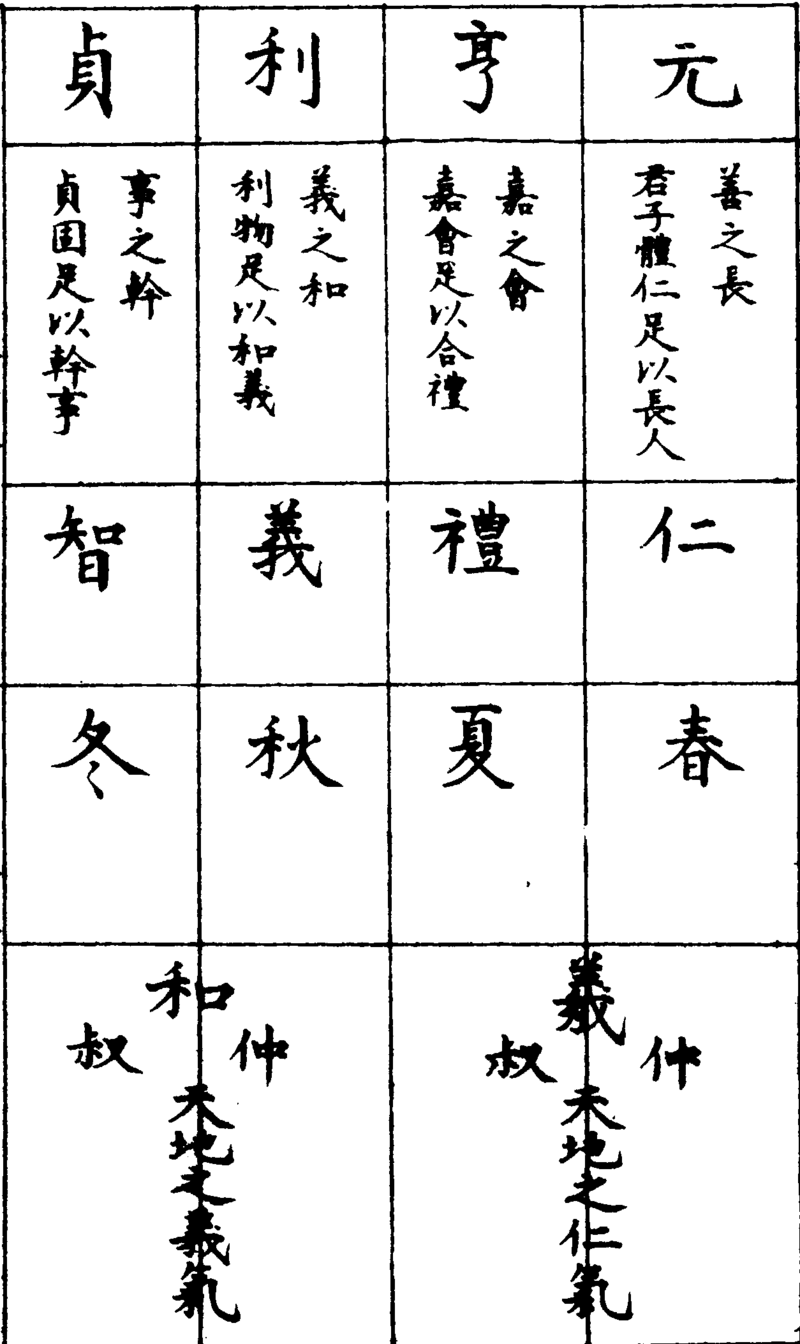 元
亨
利
貞
善之長
君子體仁足以長人
嘉之會
嘉會足以合禮
義之和
利物足以和義
事之幹
貞固足以幹事
仁
禮
義
智
春
夏
秋
冬
羲
仲
叔
天地之仁氣
和
仲
叔
天地之義氣